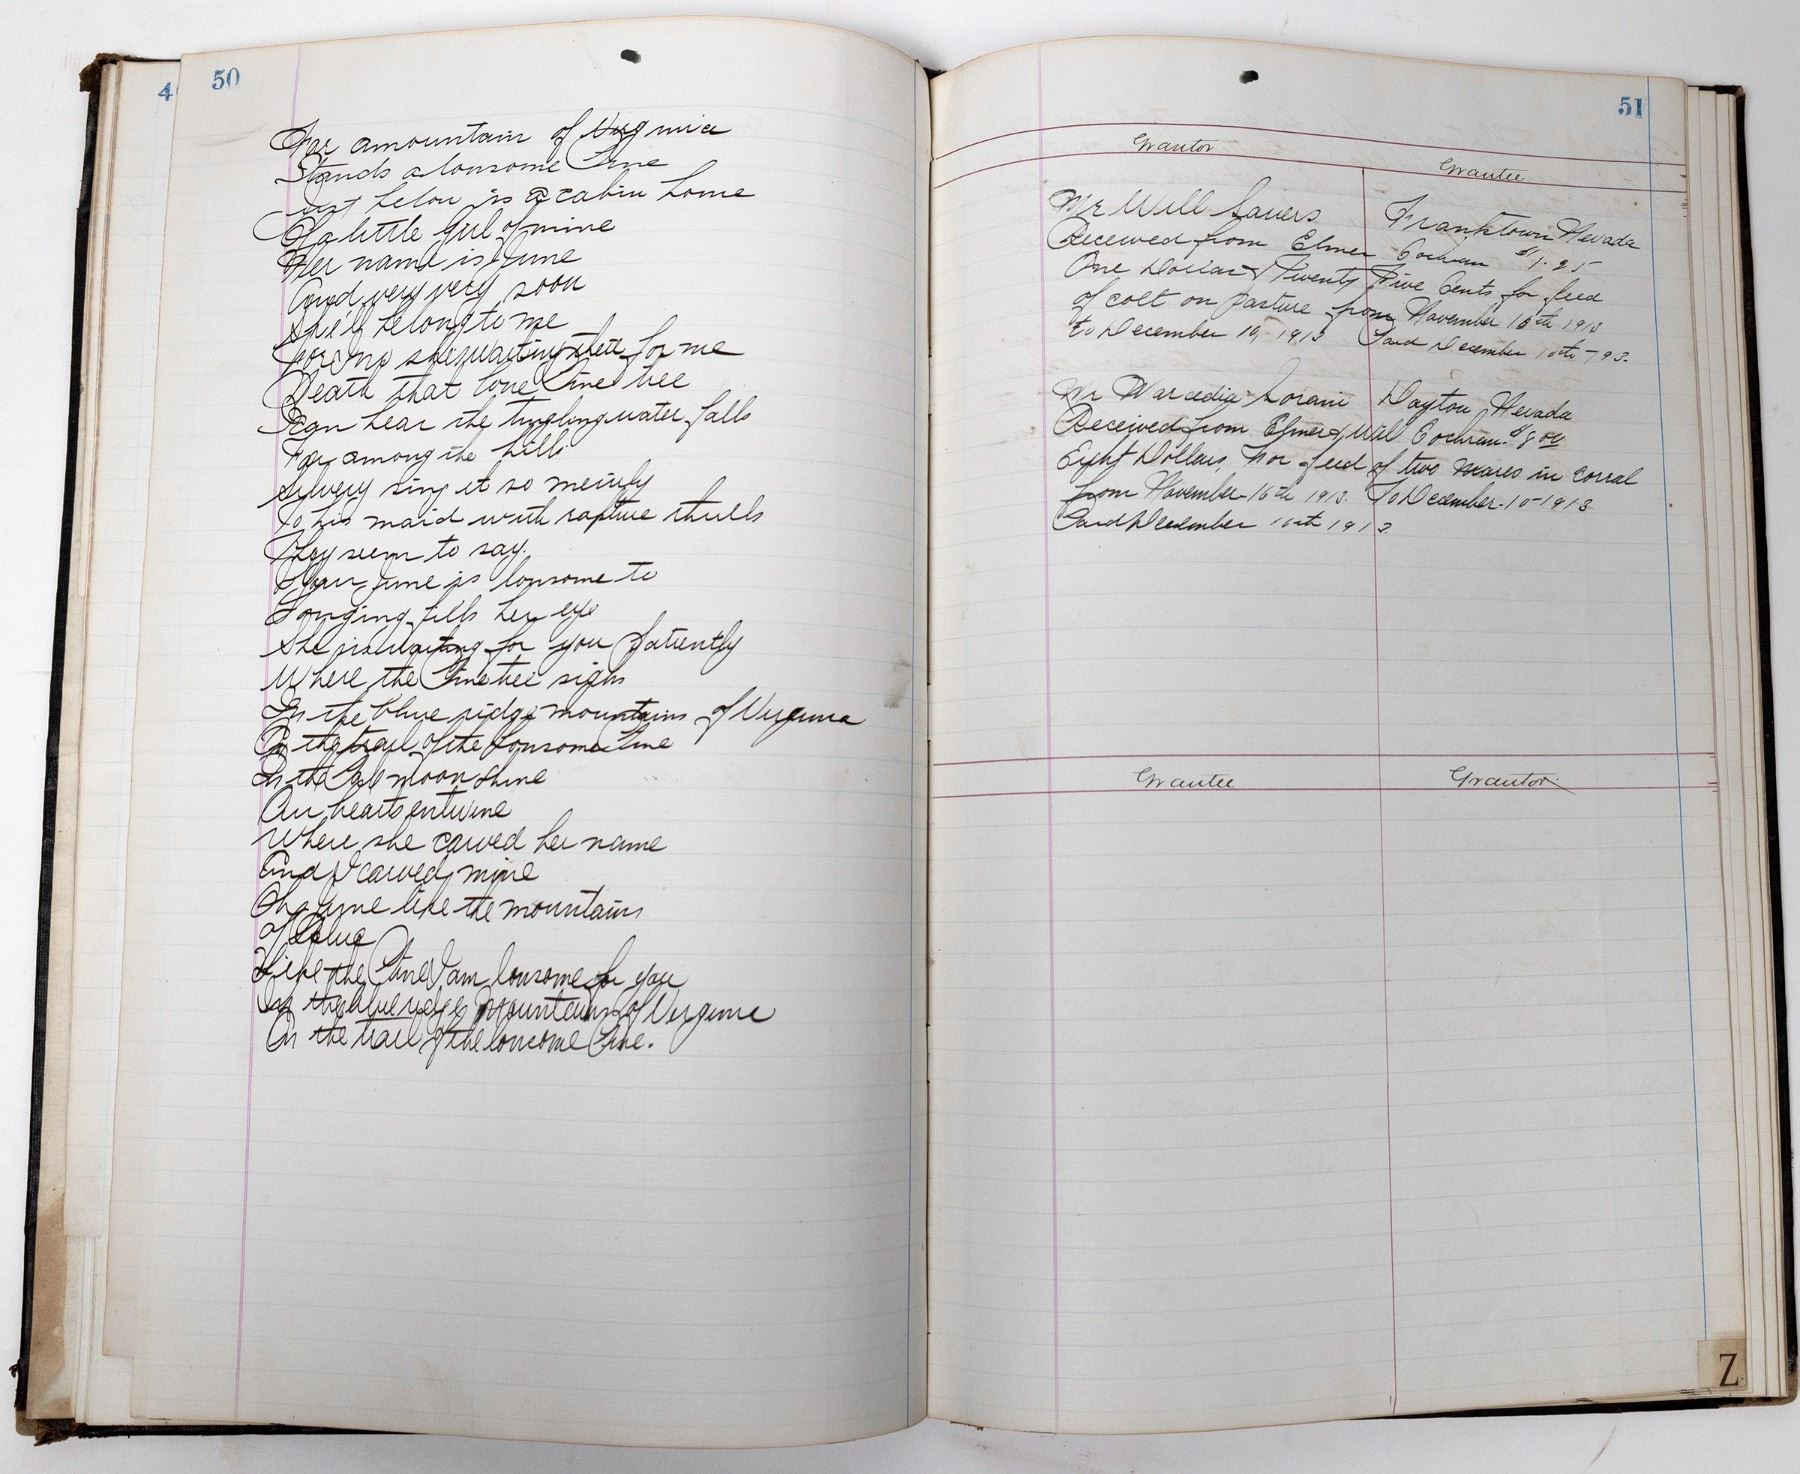 4
50
Far amountain of Virginia
Stands a lonsome Pine
just below is a cabin home
Of a little Girl of mine
Her name is June
And very very soon
She'll belong to me
for I no she waiting there for me
Neath that lone Pine tree
I can hear the tingling water falls
Far among the hills
Sylvery sing it so merrily
To his maid with rapture thrills
They seem to say.
Your June is lonsome to
Longing fills her eye
She is waiting for you patiently
Where the Pine tree sighs
In the blue ridge mountains of Virginia
On the trail of the lonsome Pine
In the Pal moon shine
Our hearts entwine
Where she carved her name
And I carved mine
Oh June like the mountains
of Blue
Like the Pine I am lonsome for you
In the blue ridge Mountains of Virginia
On the trail of the lonsome Pine.
51
Grantor Grantee
Mr Will Sauers Franktown Nevada
Received from Elmer Cochran $1.25
One Dollar & Twenty Five Cents for feed
of colt on pasture from November 16th 1913
to December 10, 1913 Paid December 10th - 1913.
Mr Sorani Dayton, Nevada
Received from Elmer & Will Cochran. $8.00
Eight Dollars, For feed of two mares in corral
from November-16th 1913. To December-10-1913
Paid December 10th 1913.
Grantee Grantor
Z